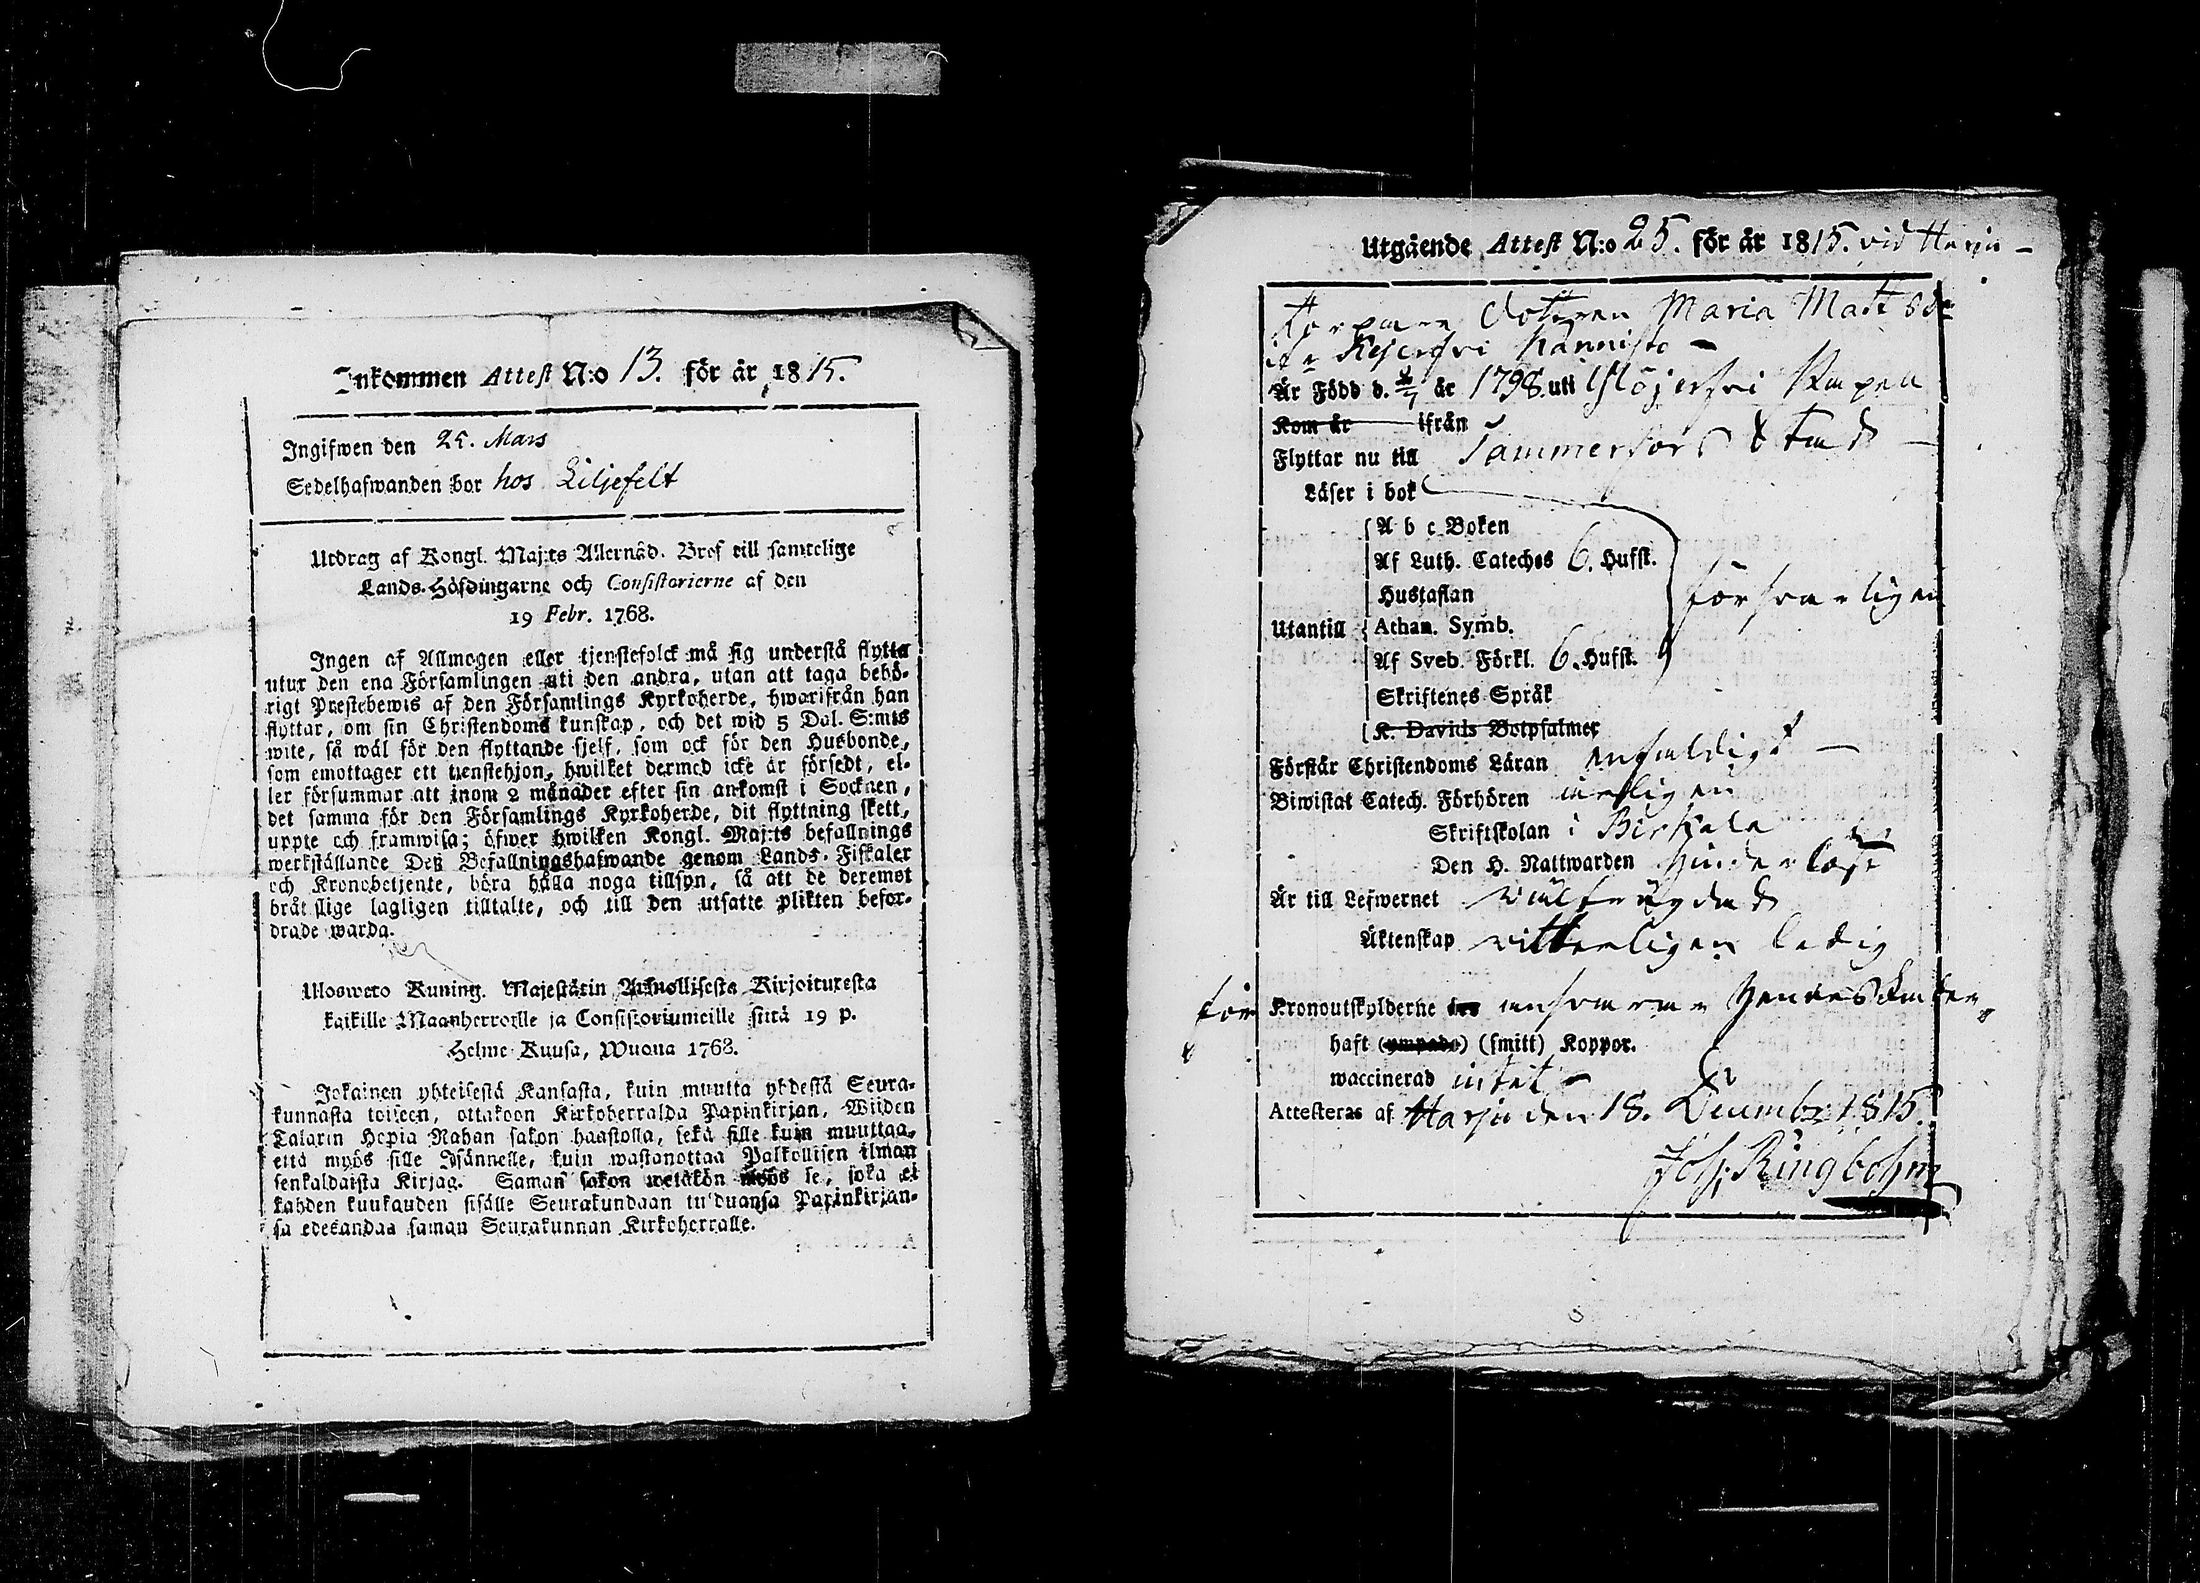 Inkommen Attest N:o 13. för år 1815.
Ingifwen den 25. Mars
Sedelhafwanden bor hos Liljefelt
Utdrag af Kongl. Maj:ts Allernåd. Bref till samtelige
Lands-Höfdingarne och Consistorierne af den
19 Febr. 1768.
Ingen af Allmogen eller tjenstefolck må sig understå flytta
utur den ena Församlingen uti den andra, utan att taga behö-
rigt Prestebewis af den Församlings Kyrkoherde, hwarifrån han
flyttar, om sin Christendoms kunskap, och det wid 5 Dal. S:mts
wite, så wäl för den flyttande sjelf, som ock för den Husbonde,
som emottager ett tienstehjon, hwilket dermed icke är försedt, el-
ler försummar att inom 2 månader efter sin ankomst i Socknen,
det samma för den Församlings Kyrkoherde, dit flyttning skett,
uppte och framwisa; öfwer hwilken Kongl. Maj:ts befallnings
werkställande Deß Befallningshafwande genom Lands-Fiskaler
och Kronobetjente, böra hålla noga tillsyn, så att de deremot
bråtslige lagligen tilltalte, och till den utsatte plikten befor-
drade warda.
Uloswero Kuning. Majestätin Armollisesta Kirjoituxesta
kaikille Maanherroille ja Consistoriumeille siitä 19 p.
Helme Kuusa, Wuona 1768.
Jokainen yhteisestä Kansasta, kuin muutta yhdestä Seura-
kunnasta toiseen, ottakoon Kirkoherralda Papinkirjan, Wiiden
Talarin Hopia Rahan sakon haastolla, sekä sille kuin muuttaa,
että myös sille Isännelle, kuin wastanottaa Palkollisen ilman
senkaldaista Kirjaa. Saman sakon wetäkön myös se, joka ei
kahden kuukauden sisälle Seurakundaan tulduansa Papinkirjan-
sa edesandaa saman Seurakunnan Kirkoherralle.
Utgående Attest N:o 25. för år 1815. vid Harju
Torpare dottren Maria Matts dr
Hannisto
Är Född d. år 1798. uti
Kom år ifrån
Flyttar nu till Tammerfors Stad
Läser i bok
A b c Boken
Af Luth. Cateches 6. Hufst.
Hustaflan försvarligen
Utantill Athan. Symb.
Af Sveb. Förkl. 6. Hufst.
Skriftenes Språk
K. Davids Botpsalmer
Förstår Christendoms Läran enfaldigt
Biwistat Catech. Förhören årligen
Skriftskolan i Birkala
Den H. Nattwarden hinderlöst
Är till Lefwernet wälfrägdad
Äktenskap vitterligen ledig
för Kronoutskylderne ansvarar hennes
haft (ympade) (smitt) Koppor.
waccinerad intet
Attesteras af Harju den 18. Decembr 1815.
Joh. Ringbohm